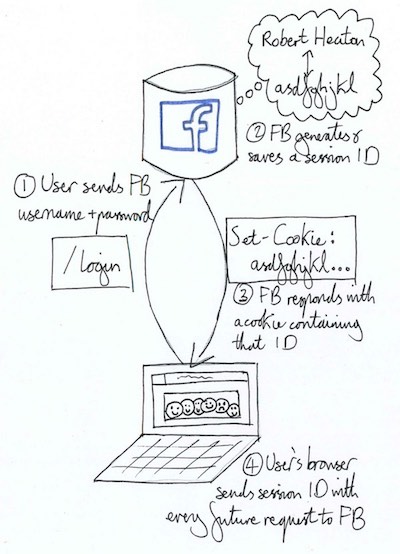 Robert Heaton
asdfghjkl
② FB generates &
saves a session ID
① User sends FB
username + password
/login
Set-Cookie:
asdfghjkl...
③ FB responds with
a cookie containing
that ID
④ User's browser
sends session ID with
every future request to FB
f